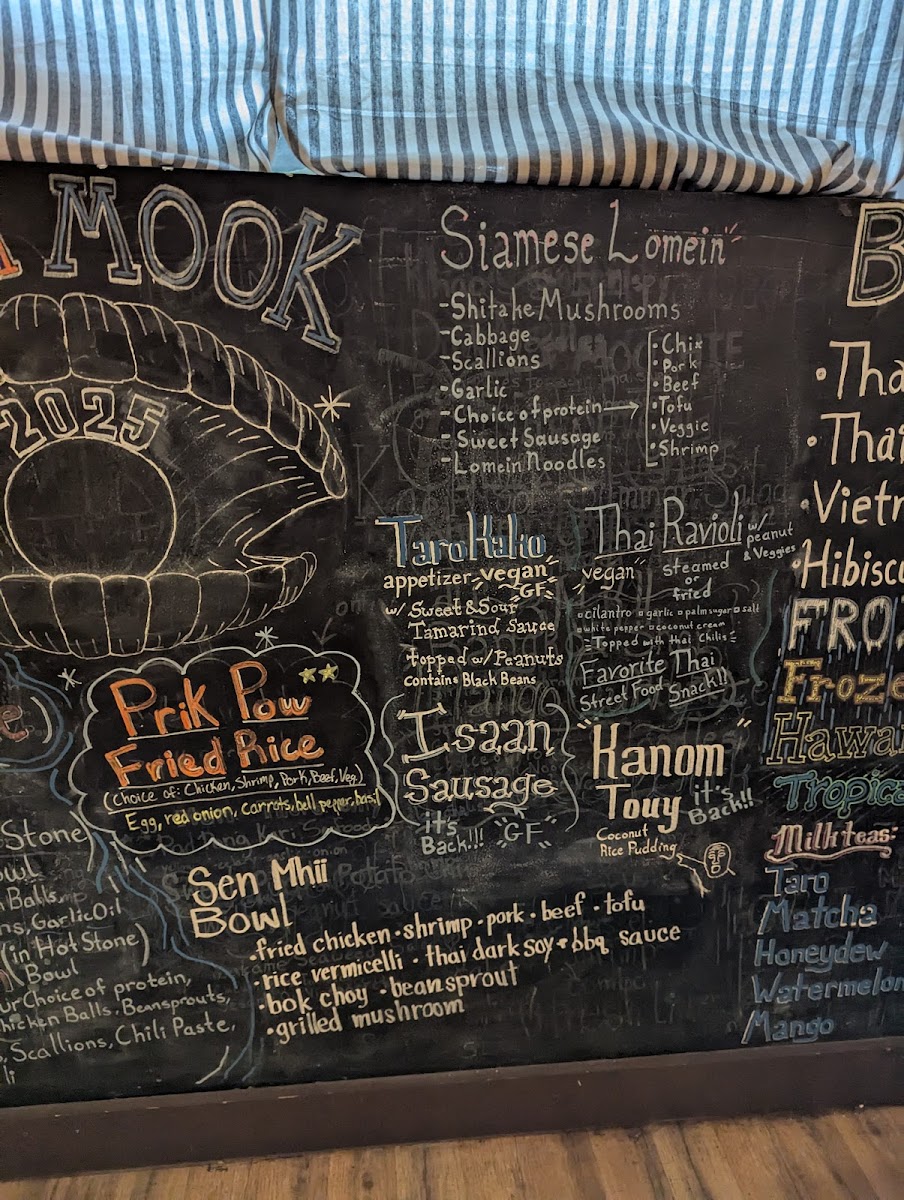 MOOK
2025
Siamese Lomein
- Shitake Mushrooms
- Cabbage
- Scallions
- Garlic
- Choice of protein →
- Sweet Sausage
- Lomein Noodles
• Chix
• Pork
• Beef
• Tofu
• Veggie
• Shrimp
Taro Kako
appetizer "vegan"
"GF"
w/ Sweet & Sour
Tamarind Sauce
topped w/ Peanuts
contains Black Beans
Thai Ravioli w/ peanut
& Veggies
"vegan" steamed
or
fried
cilantro garlic palm sugar salt
white pepper coconut cream
Topped with thai Chilis
Favorite Thai
Street Food Snack!!
Prik Pow
Fried Rice
(Choice of: Chicken, Shrimp, Pork, Beef, Veg.)
Egg, red onion, carrots, bell pepper, basil
"Isaan
Sausage
it's
Back!!! "GF"
"Kanom"
Touy it's
Back!!
Coconut
Rice Pudding
Sen Mhii
Bowl
• fried chicken • shrimp • pork • beef • tofu
• rice vermicelli • thai dark soy & bbq sauce
• bok choy • beansprout
• grilled mushroom
Stone
owl
Balls
ns, Garlic Oil
(in Hot Stone)
Bowl
ur Choice of protein,
hicken Balls, Beansprouts,
Scallions, Chili Paste,
li
B
• Tha
• Thai
• Vietn
• Hibisc
FROZ
Froze
Hawai
Tropica
Milk teas:
Taro
Matcha
Honeydew
Watermelon
Mango